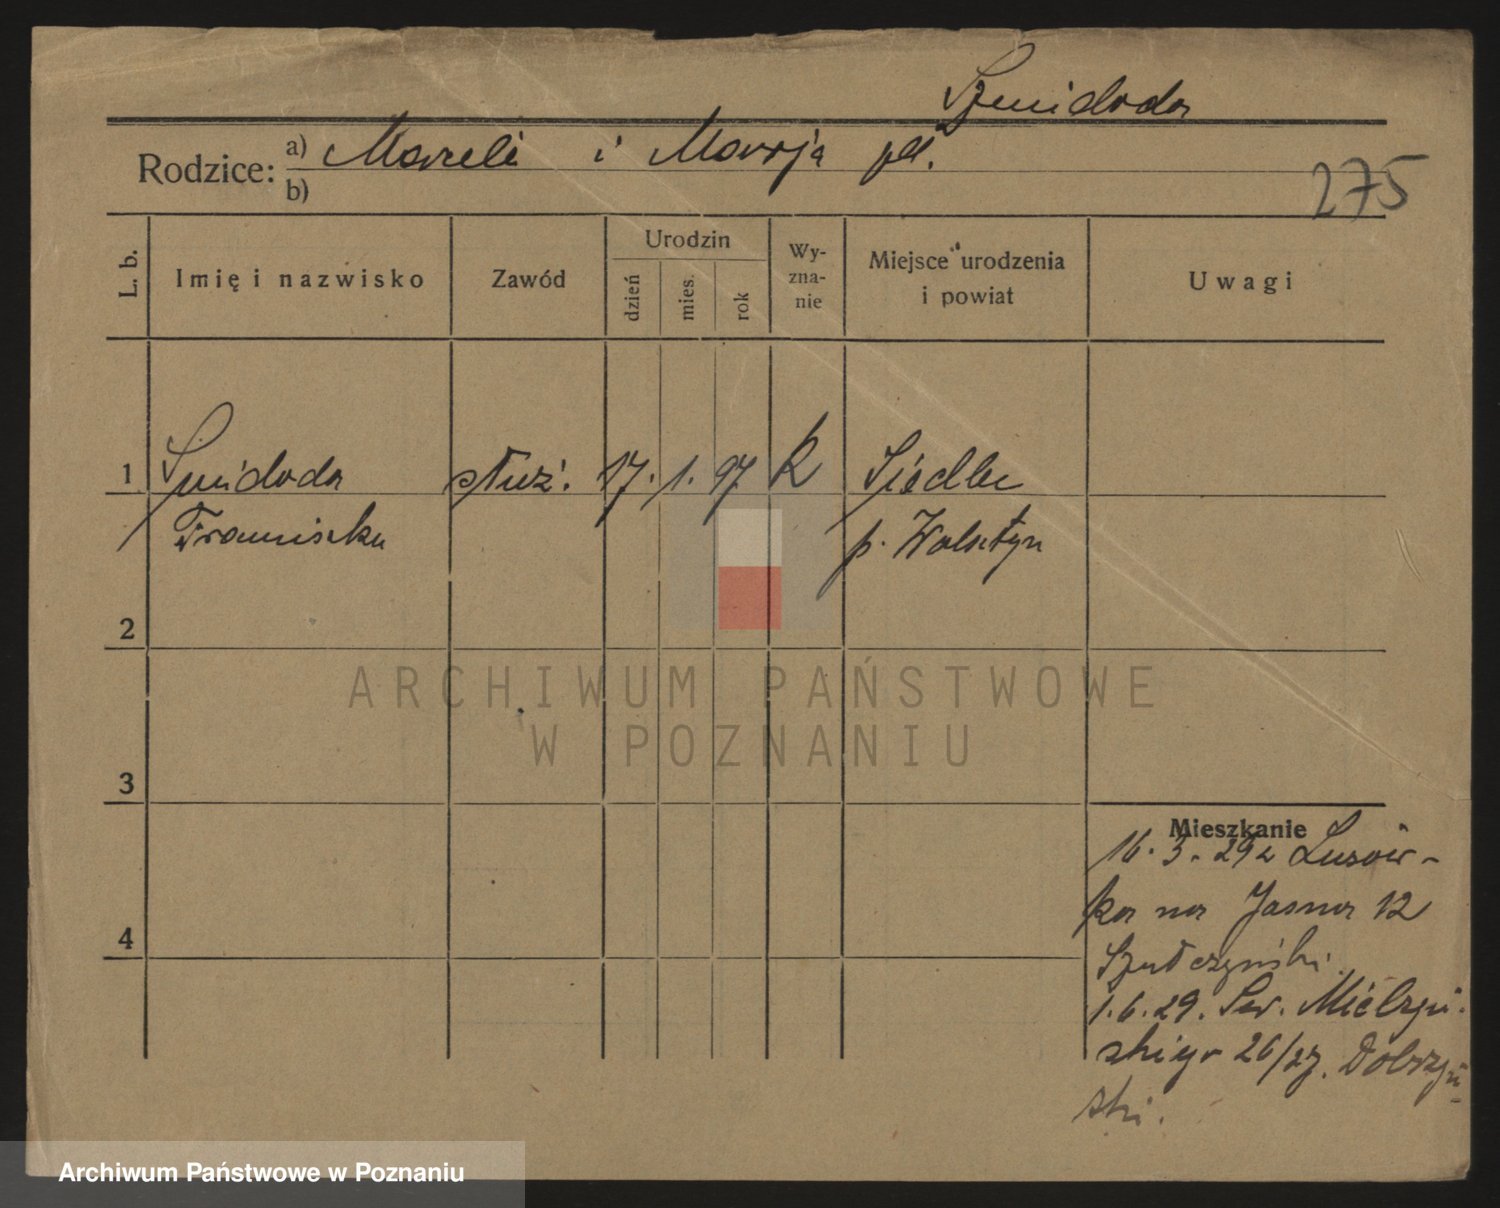 Szmidoda
Rodzice: a) Marceli i Marja pd.
b)
275
L. b.
Imię i nazwisko
Zawód
Urodzin
dzień
mies.
rok
Wy-
zna-
nie
Miejsce urodzenia
i powiat
Uwagi
1 Smidoda służ. 17. 1. 97 k Siedlec
Franciszka p. Wolsztyn
2
3
4
Mieszkanie
16. 3. 29 z Lusów-
ka na Jasna 12
Szułczyński.
1. 6. 29. Sew. Mielżyń-
skiego 26/27. Dobrzyń-
ski.
ARCHIWUM PAŃSTWOWE
W POZNANIU
Archiwum Państwowe w Poznaniu